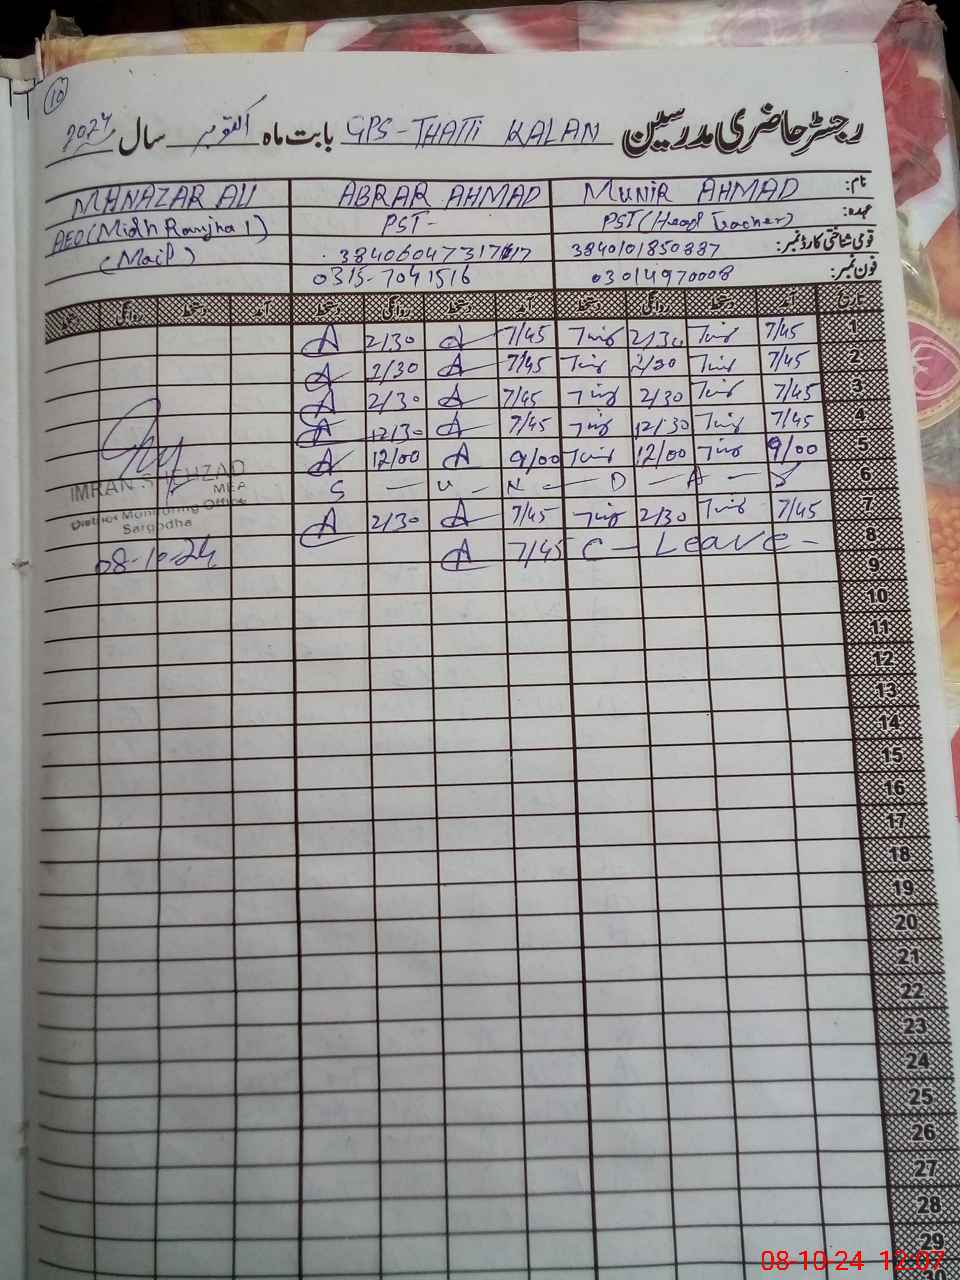 10
رجسٹر حاضری مدرسین GPS-THATTI KALAN بابت ماہ اکتوبر سال 2024
نام: MUNIR AHMAD ABRAR AHMAD MANAZAR ALI
عہدہ: PST (Head Teacher) PST- AEO (Midh Ranjha 1)
قومی شناختی کارڈ نمبر: 3840101850887 (Male)
فون نمبر: 03014970008 0315-7041516
تاریخ آمد دستخط روانگی دستخط آمد دستخط روانگی دستخط آمد دستخط روانگی دستخط
1 7/45 2/30 7/45 A 2/30 A
2 7/45 2/30 7/45 A 2/30 A
3 7/45 2/30 7/45 A 2/30 A
4 7/45 12/30 7/45 A 12/30 A
5 9/00 12/00 9/00 A 12/00 A
6 S - U - N - D - A - Y
7 7/45 2/30 7/45 A 2/30 A
8 C - Leave - 7/45 A
IMRAN SHEHZAD
MEA
District Monitoring Office
Sargodha
08-10-24
9
10
11
12
13
14
15
16
17
18
19
20
21
22
23
24
25
26
27
28
29
30
08-10-24 12:07